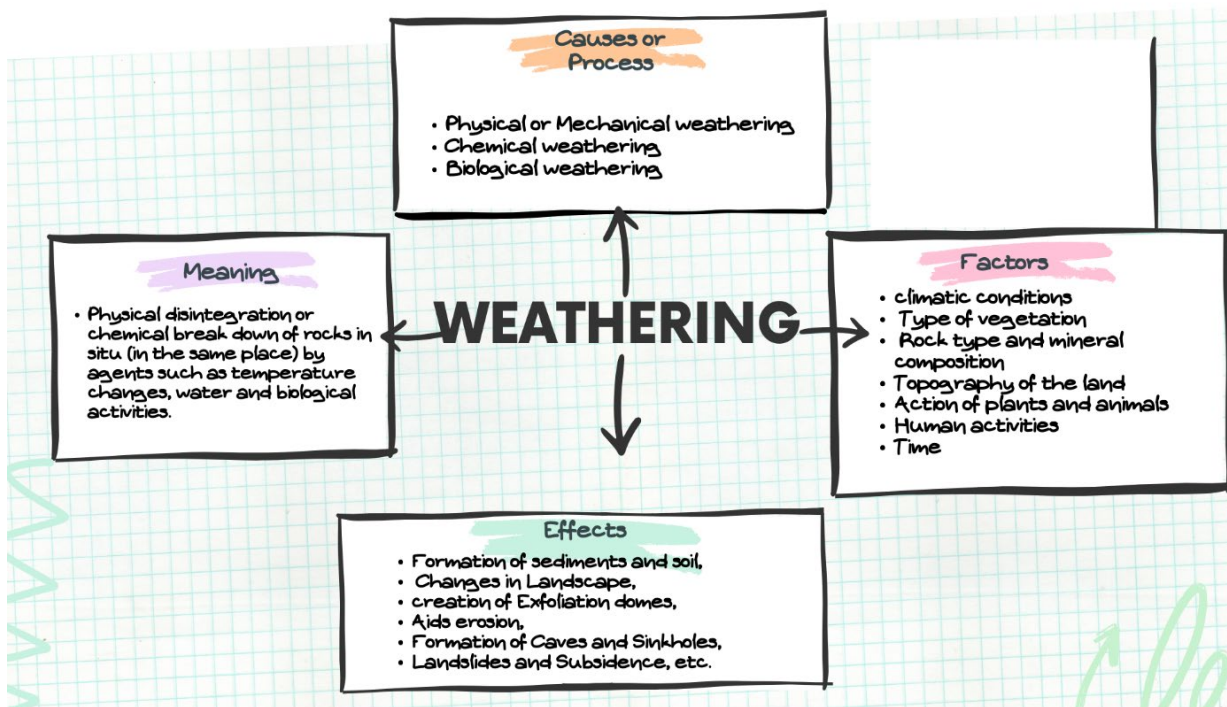 Causes or
Process
• Physical or Mechanical weathering
• Chemical weathering
• Biological weathering
Meaning
• Physical disintegration or
chemical break down of rocks in
situ (in the same place) by
agents such as temperature
changes, water and biological
activities.
WEATHERING
Factors
• climatic conditions
• Type of vegetation
• Rock type and mineral
composition
• Topography of the land
• Action of plants and animals
• Human activities
• Time
Effects
• Formation of sediments and soil,
• Changes in Landscape,
• creation of Exfoliation domes,
• Aids erosion,
• Formation of Caves and Sinkholes,
• Landslides and Subsidence, etc.